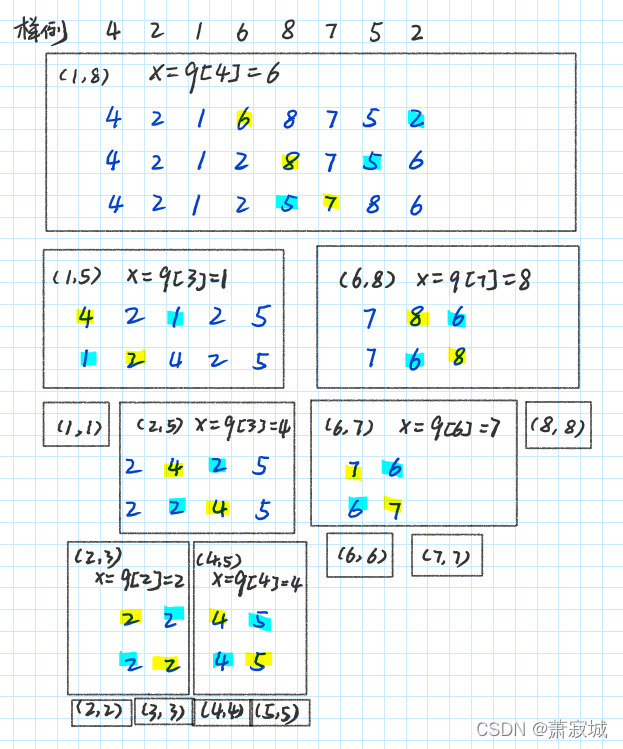 样例 4 2 1 6 8 7 5 2
(1,8) x=q[4]=6
4 2 1 6 8 7 5 2
4 2 1 2 8 7 5 6
4 2 1 2 5 7 8 6
(1,5) x=q[3]=1
4 2 1 2 5
1 2 4 2 5
(6,8) x=q[7]=8
7 8 6
7 6 8
(1,1)
(2,5) x=q[3]=4
2 4 2 5
2 2 4 5
(6,7) x=q[6]=7
7 6
6 7
(8,8)
(2,3)
x=q[2]=2
2 2
2 2
(4,5)
x=q[4]=4
4 5
4 5
(6,6)
(7,7)
(2,2)
(3,3)
(4,4)
(5,5)
CSDN @萧寂城